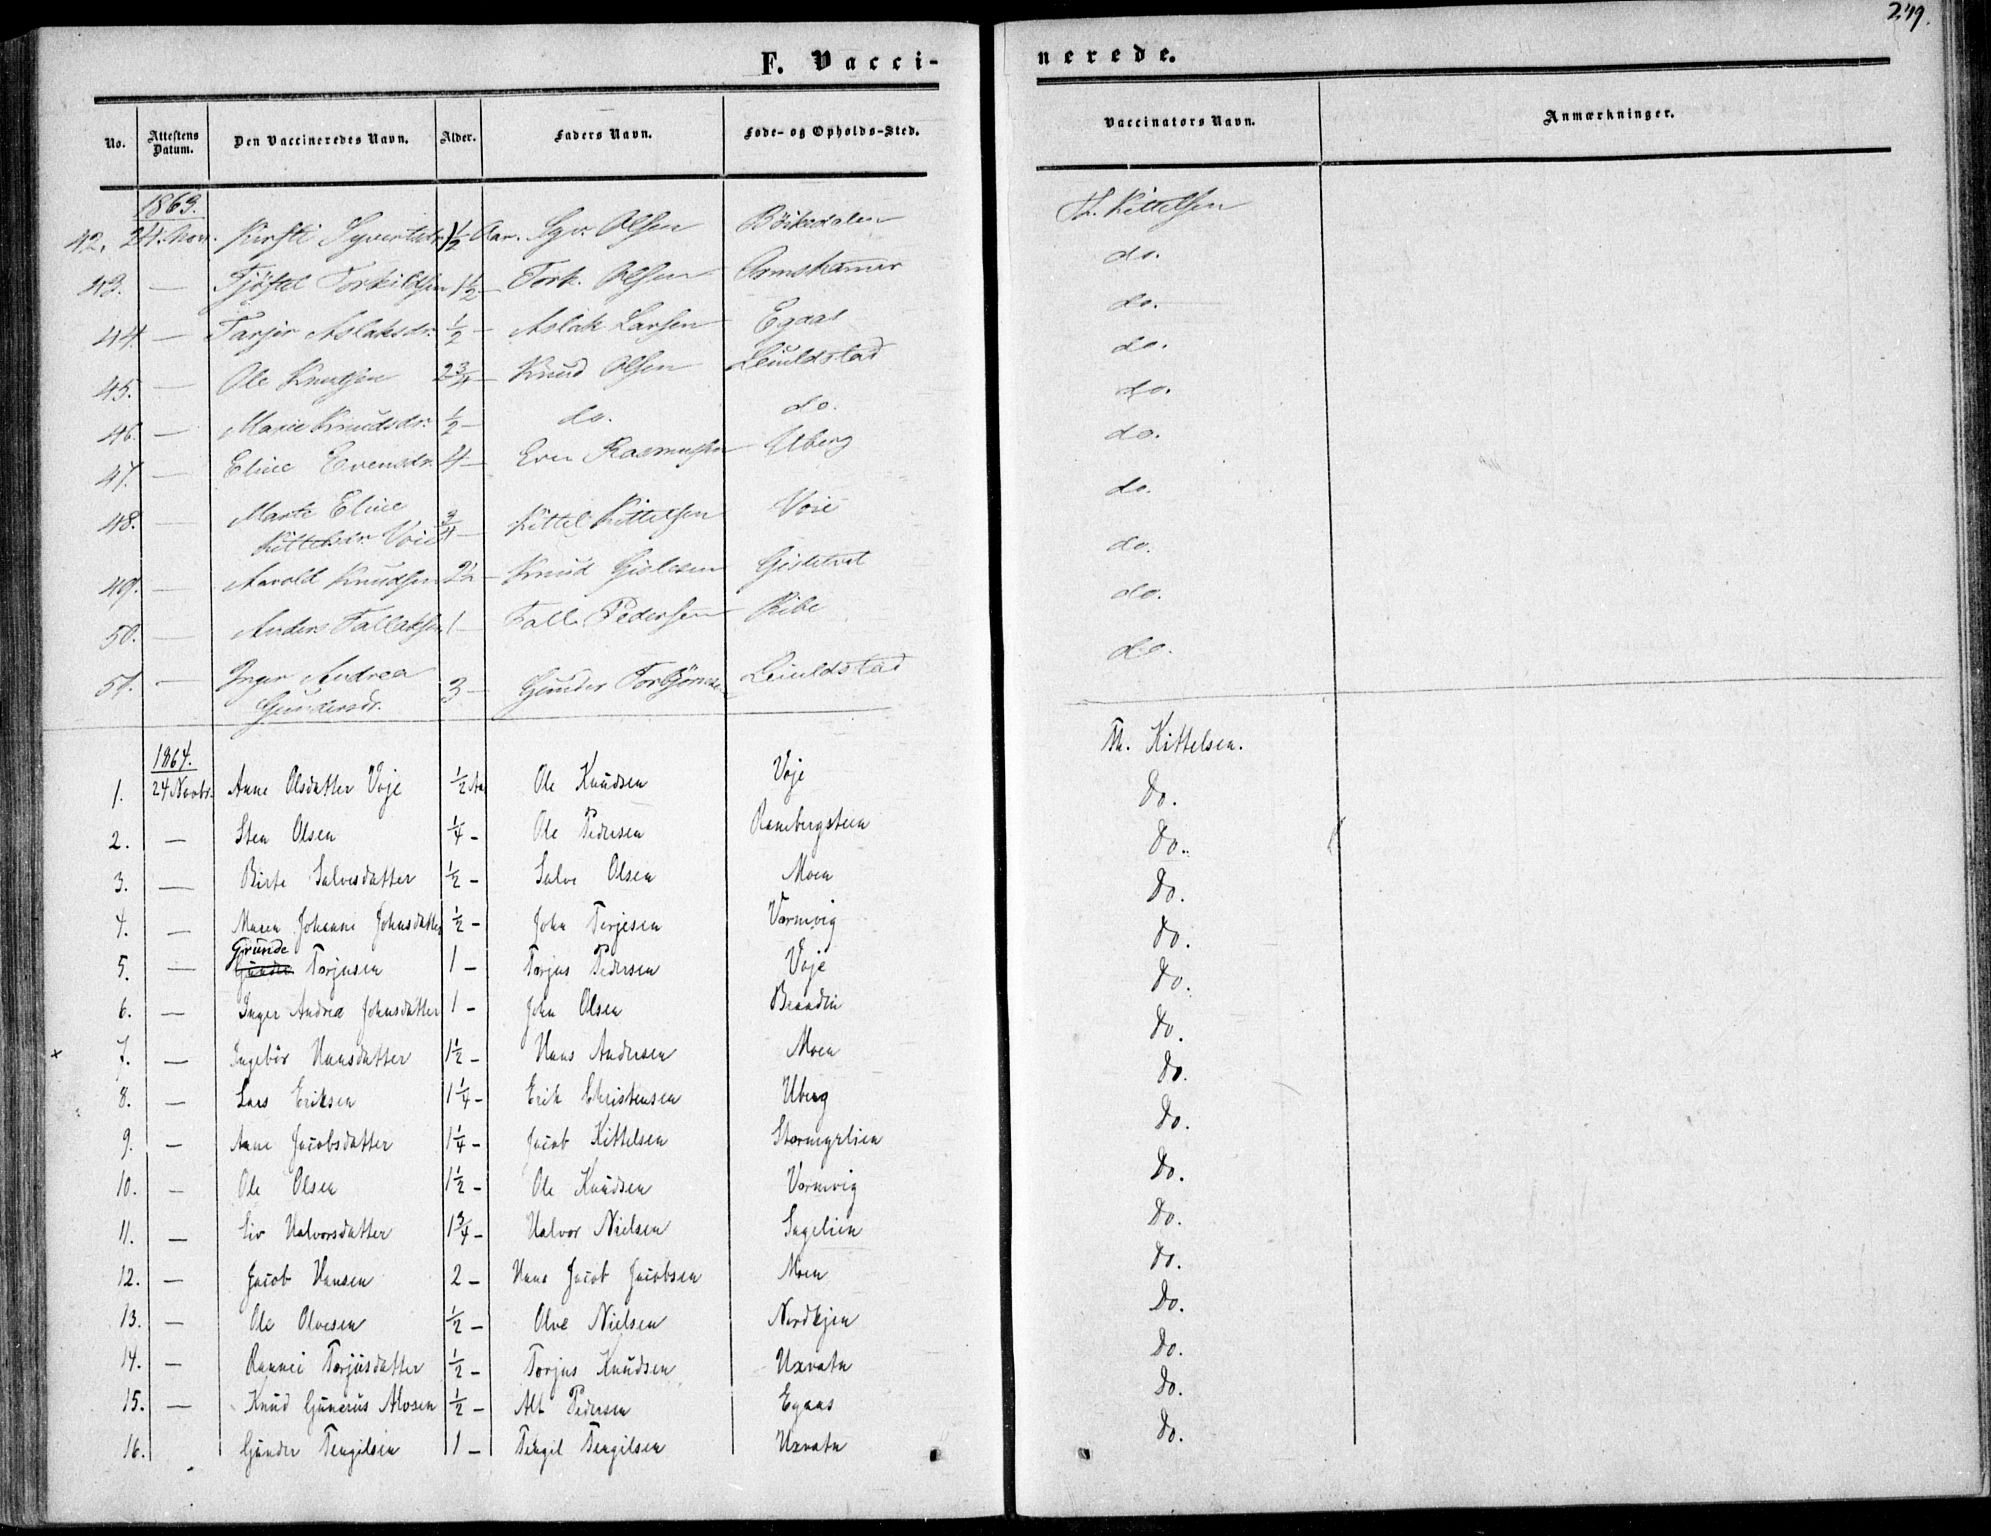 249.
F. Vacci-
nerede.
No. Attestens Datum. Den Vaccineredes Navn. Alder. Faders Navn. Føde- og Opholds-Sted. Vaccinators Navn. Anmærkninger.
1863.
42. 24. Nov. Kirsti Syvertsdr. 1½ Aar. Syv. Olsen Th. Kittelsen
43. — Tjöstel Torkildsen 1½ — Tork. Olsen do.
44. — Tarjer Aslaksdr. ½ — Aslak Larsen Egaas do.
45. — Ole Knutsen 2¾ — Knud Olsen Leuldstad do.
46. — Marie Knudsdr. ½ — do. do. do.
47. — Eline Evensdr. 4 — Even Rasmussen Uberg do.
48. — Marte Eline
Kittelsdr. Voie ¾ — Kittel Kittelsen Voie do.
49. — Aavold Knudsen 2½ — Knud Gislesen do.
50. — Anders Tallaksen 1 — Tall. Pedersen Ribe do.
51. — Inger Andrea
Gundersdr. 3 — Gunder Torbjörns. Leuldstad do.
1864.
1. 24 Novbr. Anne Olsdatter Voje ½ Aar Ole Knudsen Voje Th. Kittelsen.
2. — Sten Olsen ¼ - Ole Pedersen Rambergsteen Do.
3. — Birte Salvesdatter ½ - Salve Olsen Moen Do.
4. — Maren Johanne Johnsdatter ½ - John Terjesen Vormvig Do.
Grunde
5. — Gunder Torjusen 1 - Torjus Pedersen Voje Do.
6. — Inger Andrea Johnsdatter 1 - John Olsen Do.
× 7. — Ingebör Hansdatter 1½ - Hans Andersen Moen Do.
8. — Lars Eriksen 1¼ - Erik Christensen Uberg Do.
9. - Anne Jacobsdatter 1¼ - Jacob Kittelsen Stormyrlien Do.
10. - Ole Olsen 1½ - Ole Knudsen Vormvig Do.
11. - Liv Halvorsdatter 1¾ - Halvor Nielsen Ingelien Do.
12. — Jacob Hansen 2 - Hans Jacob Jacobsen Moen Do.
13. — Ole Olvesen ½ - Olve Nielsen Nordkjen Do.
14. - Rannei Torjusdatter ½ - Torjus Knudsen Uxvatn Do.
15. — Knud Gunerus Alvsen ½ - Alf Pedersen Egaas Do.
16. Gunder Tengilsen 1 - Tengil Tengilsen Uxvatn Do.